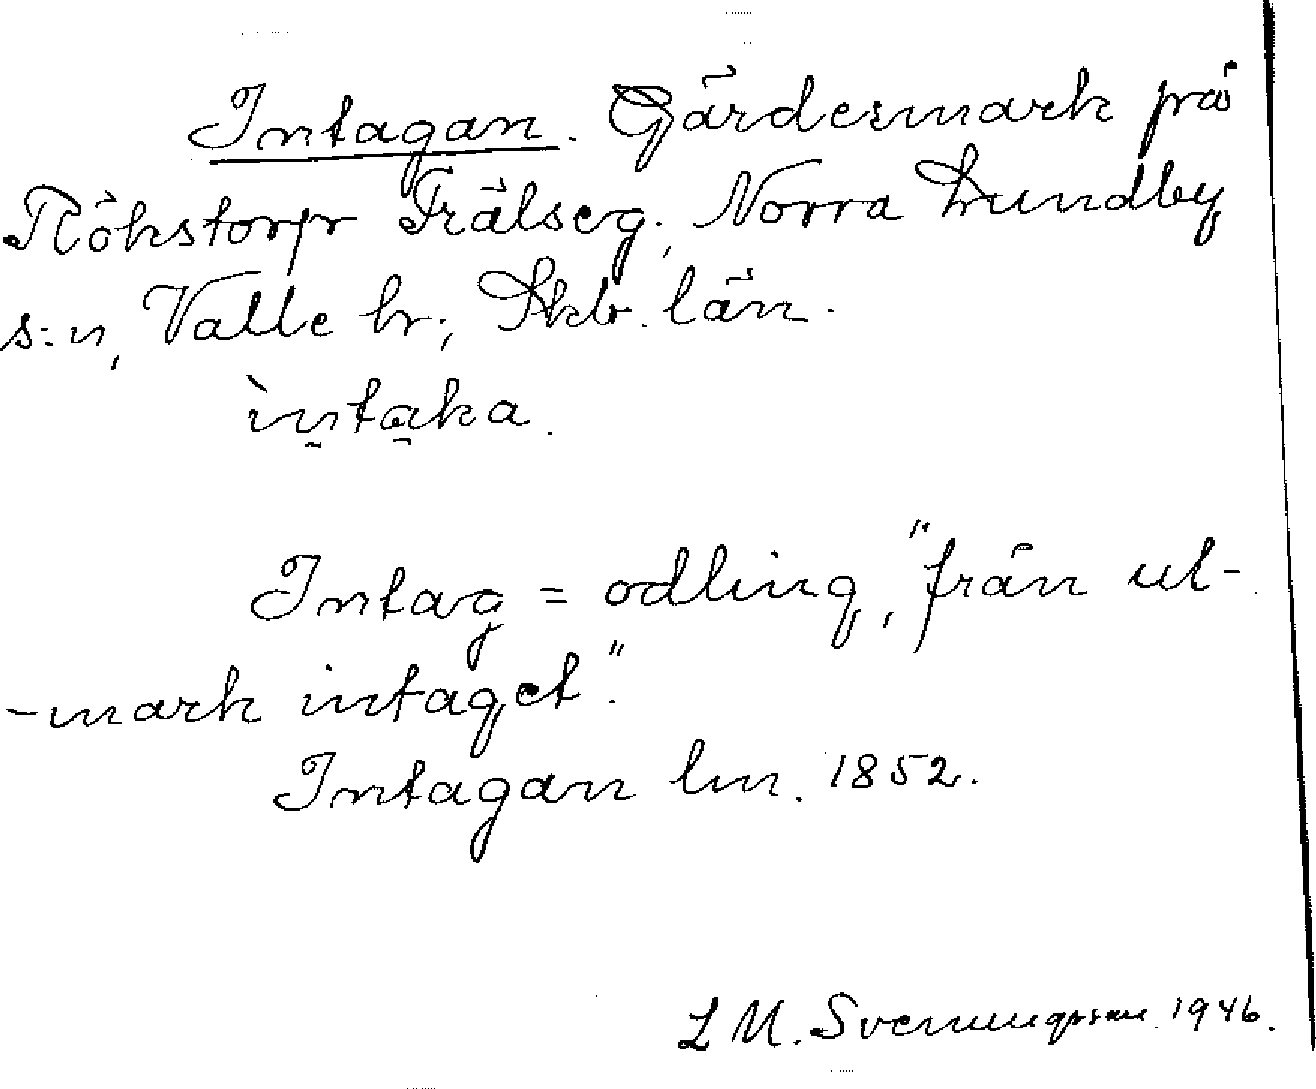 Intagan. Gärdesmark på
Rökstorp Frälseg., Norra Lundby
s:n, Valle hr; Skbr. län.
ìntaka.
Intag = odling, "från ut-
-mark intaget".
Intagan lm. 1852.
L M. Svenungsson 1946.